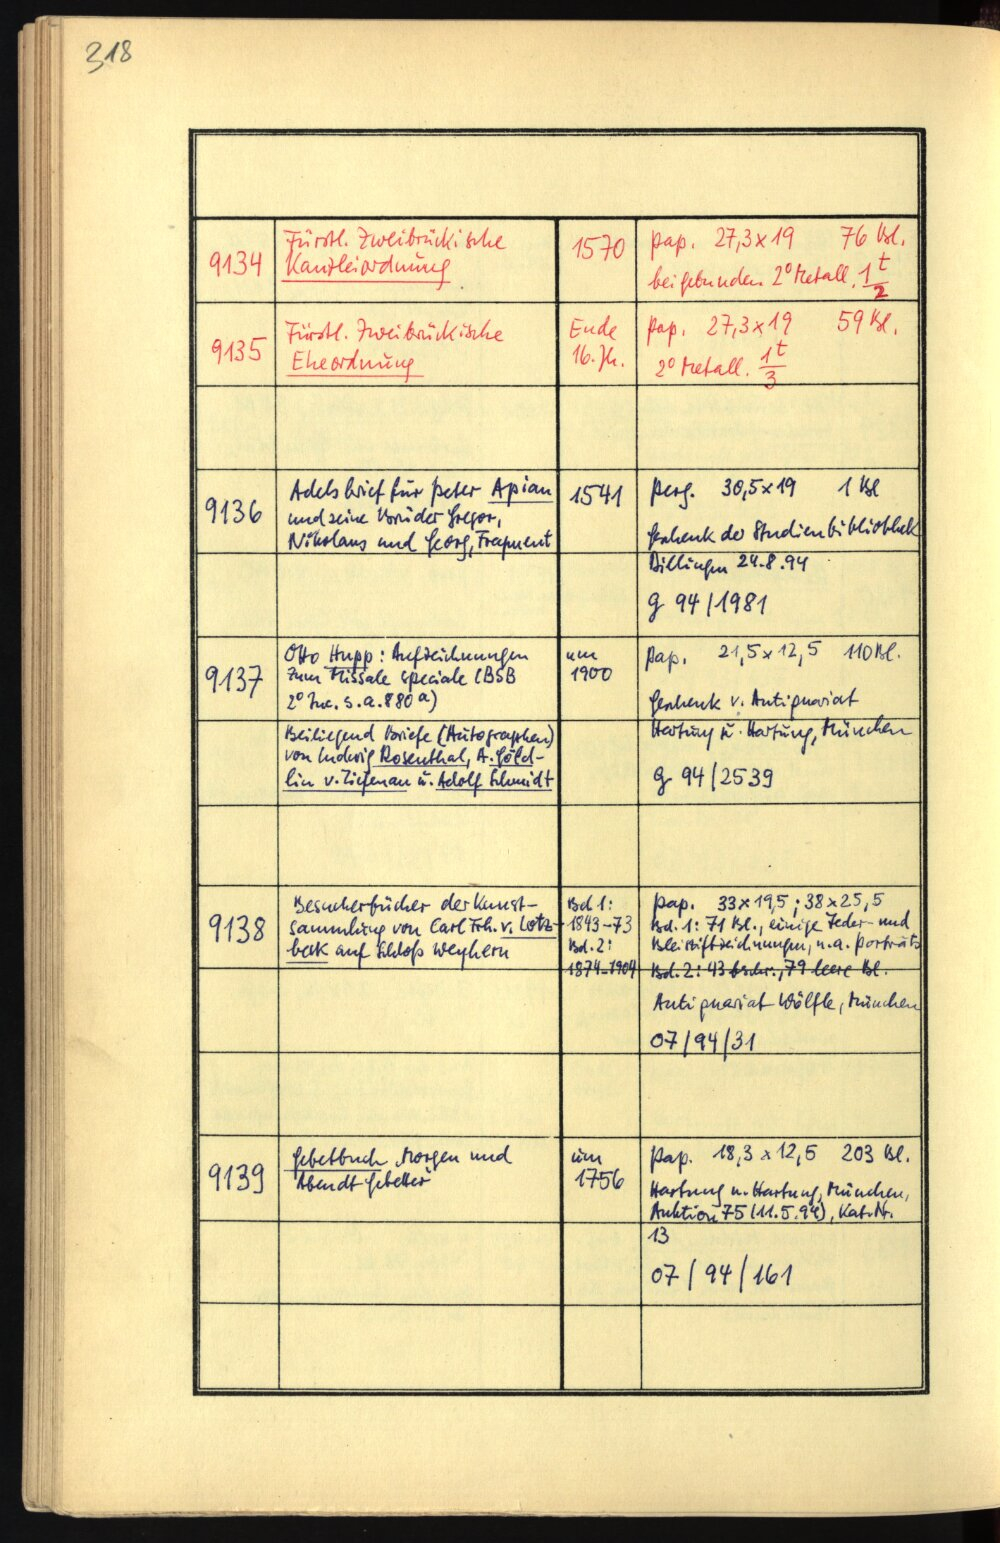 318
9134
Fürstl. Zweibrückische
Kanzleiordnung
1570
Pap. 27,3 x 19 76 Bl.
beigebunden. 2° Metall. 1t/2
9135
Fürstl. Zweibrückische
Eheordnung
Ende
16. Jh.
Pap. 27,3 x 19 59 Bl.
2° Metall. 1t/3
9136
Adelsbrief für Peter Apian
und seine Brüder Gregor,
Nikolaus und Georg, Fragment
1541
Perg. 30,5 x 19 1 Bl
Geschenk der Studienbibliothek
Dillingen 24.8.94
g 94/1981
9137
Otto Hupp: Aufzeichnungen
zum Missale speciale (BSB
2° Inc. s. a. 880 a)
Beiliegend Briefe (Autographen)
von Ludwig Rosenthal, A. Göld-
lin v. Tiefenau u. Adolf Schmidt
um
1900
Pap. 21,5 x 12,5 110 Bl.
Geschenk v. Antiquariat
Hartung u. Hartung, München
g 94/2539
9138
Besucherbücher der Kunst-
sammlung von Carl Frh. v. Lotz-
beck auf Schloß Weyhern
Bd. 1:
1843-73
Bd. 2:
1874-1904
Pap. 33 x 19,5; 38 x 25,5
Bd. 1: 71 Bl., einige Feder- und
Bleistiftzeichnungen, u. a. Porträts
Bd. 2: 43 beschr., 79 leere Bl.
Antiquariat Wölfle, München
07/94/31
9139
Gebetbuch „Morgen und
Abendt Gebetter"
um
1756
Pap. 18,3 x 12,5 203 Bl.
Hartung u. Hartung, München,
Auktion 75 (11.5.94), Kat. Nr.
13
07/94/161